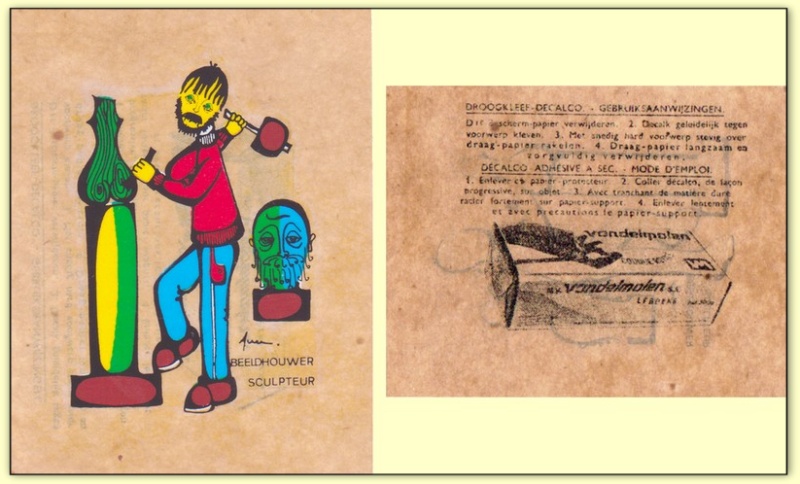 BEELDHOUWER
SCULPTEUR
DROOGKLEEF-DECALCO. - GEBRUIKSAANWIJZINGEN.
Dit bescherm-papier verwijderen. 2. Decalk geleidelijk tegen
voorwerp kleven. 3. Met snedig hard voorwerp stevig over
draag-papier rakelen. 4. Draag-papier langzaam en
zorgvuldig verwijderen.
DECALCO ADHESIVE A SEC. - MODE D'EMPLOI.
1. Enlever ce papier-protecteur. 2. Coller décalco, de façon
progressive, sur objet. 3. Avec tranchant de matière dure
racler fortement sur papier-support. 4. Enlever lentement
et avec precautions le papier-support.
vandelmolen
N.V. vandelmolen S.A.
LEBBEKE